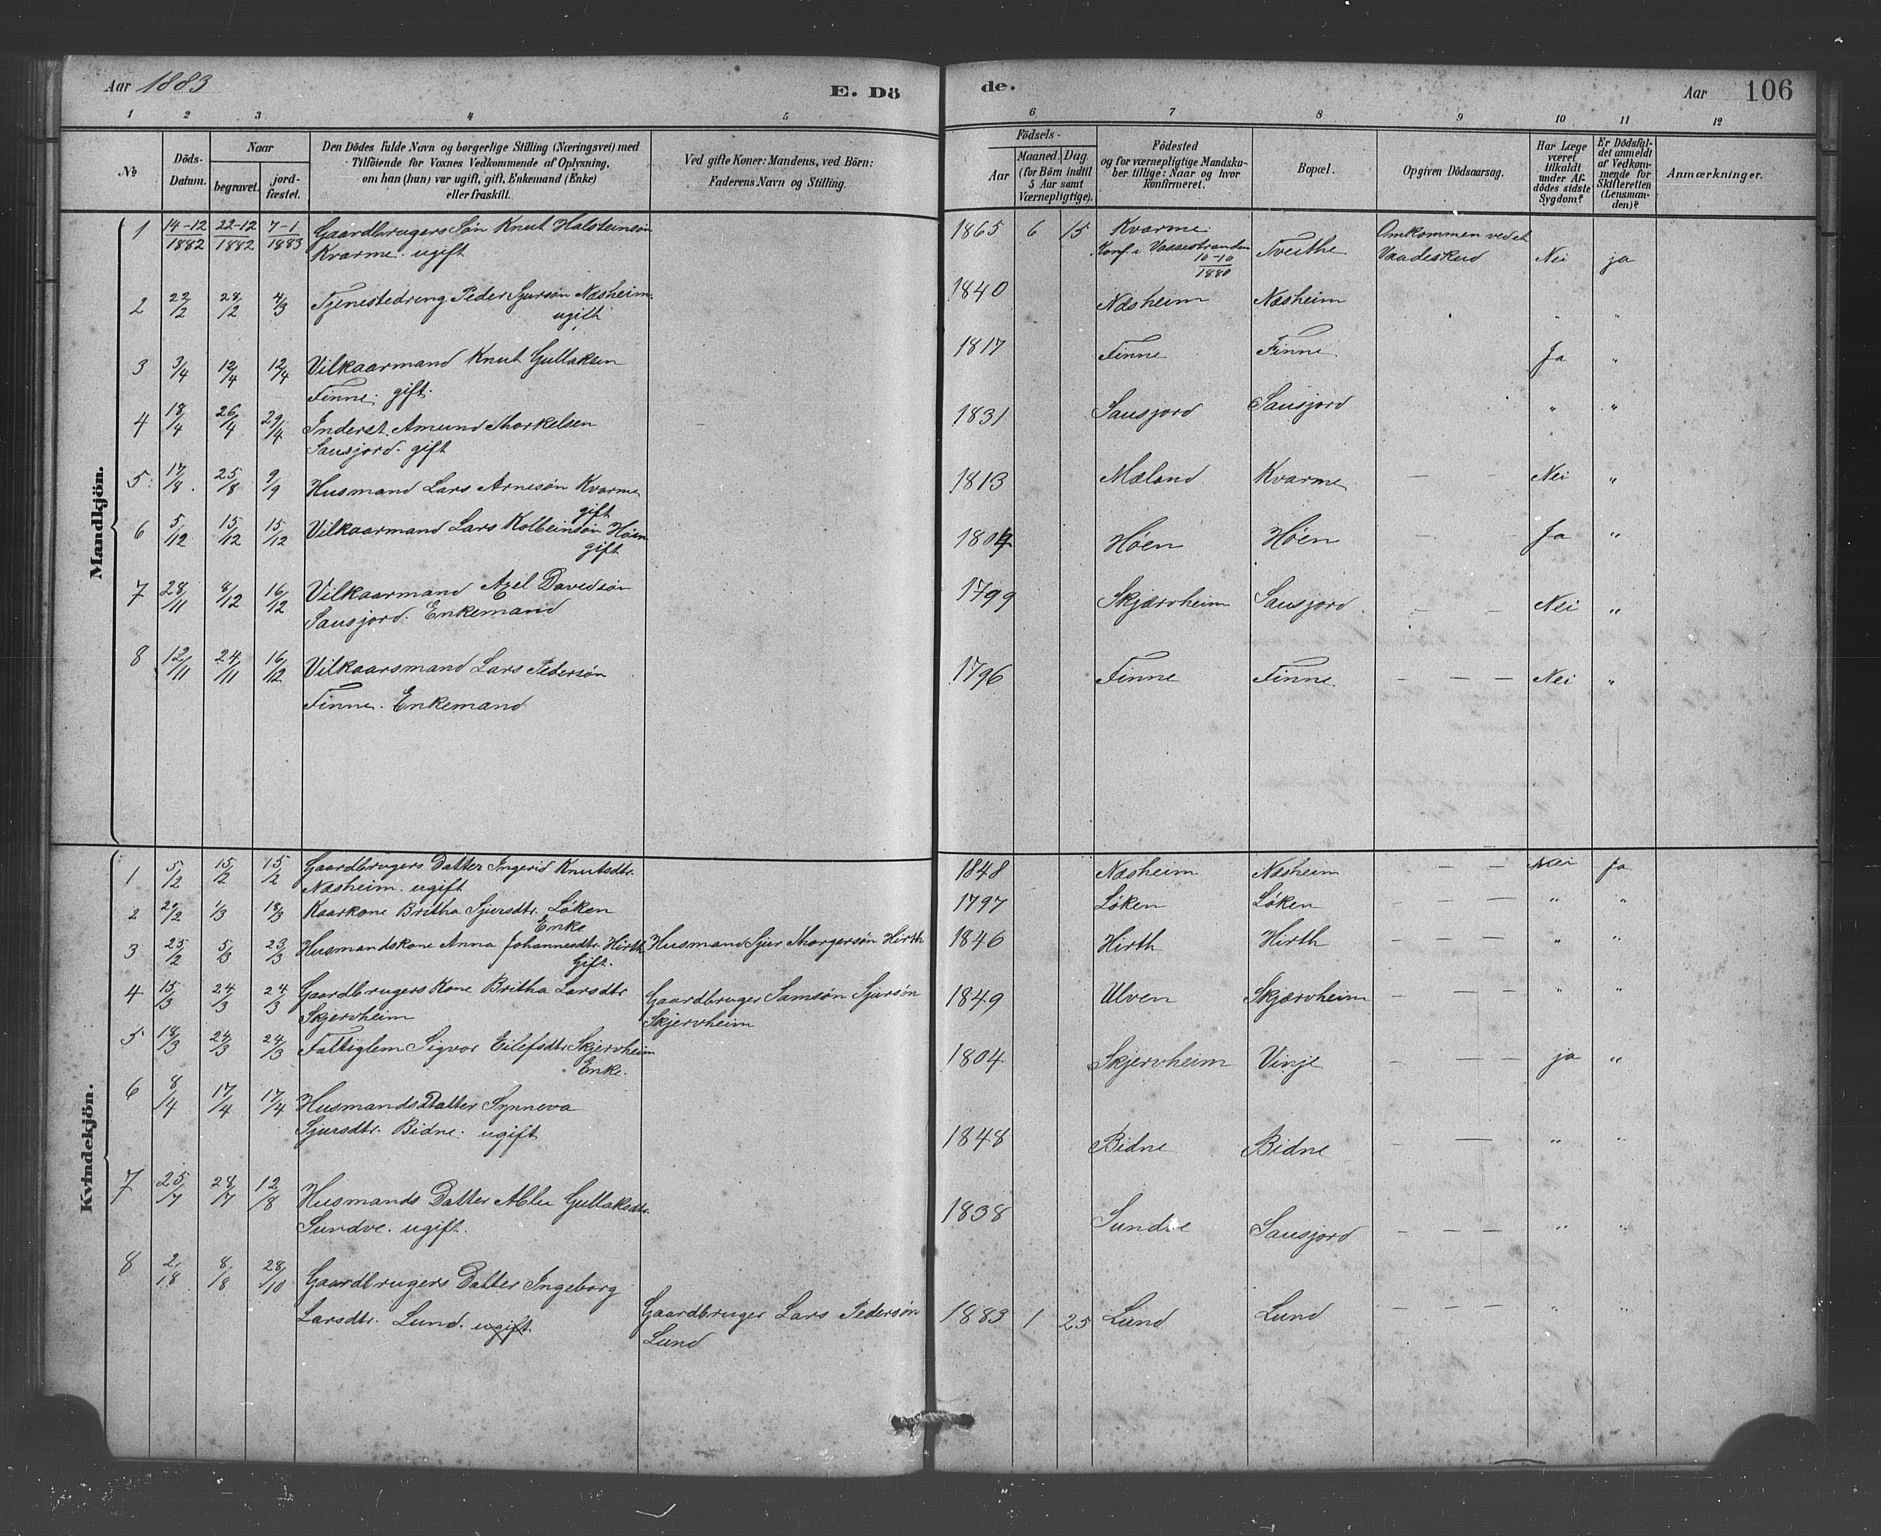 Aar 1883
E. Dö
de.
Aar 106
1 2 3 4 5 6 7 8 9 10 11 12
№
Döds-
Datum.
Naar
begravet.
jord-
fæstet.
Den Dödes fulde Navn og borgerlige Stilling (Næringsvei) med
Tilföiende for Voxnes Vedkommende af Oplysning,
om han (hun) var ugift, gift, Enkemand (Enke)
eller fraskilt.
Ved gifte Koner: Mandens, ved Börn:
Faderens Navn og Stilling.
Födsels-
Aar
Maaned. Dag.
(for Börn indtil
5 Aar samt
Værnepligtige).
Födested
og for værnepligtige Mandska-
ber tillige: Naar og hvor
konfirmeret.
Bopæl.
Opgiven Dödsaarsag.
Har Læge
været
tilkaldt
under Af-
dödes sidste
Sygdom?
Er Dödsfal-
det anmeldt
af Vedkom-
mende for
Skifteretten
(Lensman-
den)?
Anmærkninger.
Mandkjön.
1 14-12/1882 22-12/1882 7-1/1883 Gaardbrugers Søn Knut Halsteinsøn
Kvarme. ugift
1865 6 15 Kvarme
Konf. i Vossestranden
10-10/1880
Tveithe
Omkommen ved et
Vaadeskud
Nei ja
2 22/2 28/2 4/3 Tjenestedreng Peder Sjursøn Næsheim.
ugift
1840 Næsheim Næsheim " "
3 3/4 12/4 12/4 Vilkaarmand Knut Gullaksen
Finne. gift.
1817 Finne Finne Ja "
4 18/4 26/4 29/4 Inderst. Amund Thorkelsen
Sausjord. gift
1831 Sausjord Sausjord " "
5 17/8 25/8 9/9 Husmand Lars Arnesøn Kvarme
gift
1813 Mæland Kvarme — — Nei "
6 5/12 15/12 15/12 Vilkaarmand Lars Kolbeinsøn Høen
gift
1804 Høen Høen — — Ja "
7 28/11 8/12 16/12 Vilkaarmand Axel Davidsøn
Sausjord. Enkemand
1799 Skjærvheim Sausjord — — Nei "
8 12/11 24/11 16/12 Vilkaarsmand Lars Pedersøn
Finne. Enkemand
1796 Finne Finne. — — — Nei "
Kvindekjön.
1 5/2 15/2 15/2 Gaardbrugers Datter Ingerid Knutsdtr.
Næsheim. ugift
1848 Næsheim Næsheim — — — Nei Ja
2 /2 /3 18/3 Kaarkone Britha Sjursdtr. Løken
Enke
1797 Løken Løken — — — " "
3 25/2 5/3 23/3 Husmandskone Anna Johannesdtr. Hirth
Gift.
Husmand Sjur Thorgersøn Hirth
1846 Hirth Hirth — — — " "
4 15/3 24/3 24/3 Gaardbrugers Kone Britha Larsdtr
Skjervheim
Gaardbruger Samsøn Sjursøn
Skjervheim
1849 Ulven Skjærvheim — — — " "
5 18/3 24/3 24/3 Fattiglem Sigvor Eilefsdtr. Skjervheim
Enke.
1804 Skjervheim Vinje — — — ja "
6 8/4 17/4 17/4 Husmands Datter Synneva
Sjursdtr. Bidne. ugift
1848 Bidne Bidne — — — " "
7 25/7 28/7 12/8 Husmands Datter Gullaksdtr.
Sundve. ugift.
1838 Sundve Sausjord — — — " "
8 2/8 8/8 28/10 Gaardbrugers Datter Ingeborg
Larsdtr. Lund. ugift.
Gaardbruger Lars Pedersøn
Lund
1883 1 25 Lund Lund — — — " "